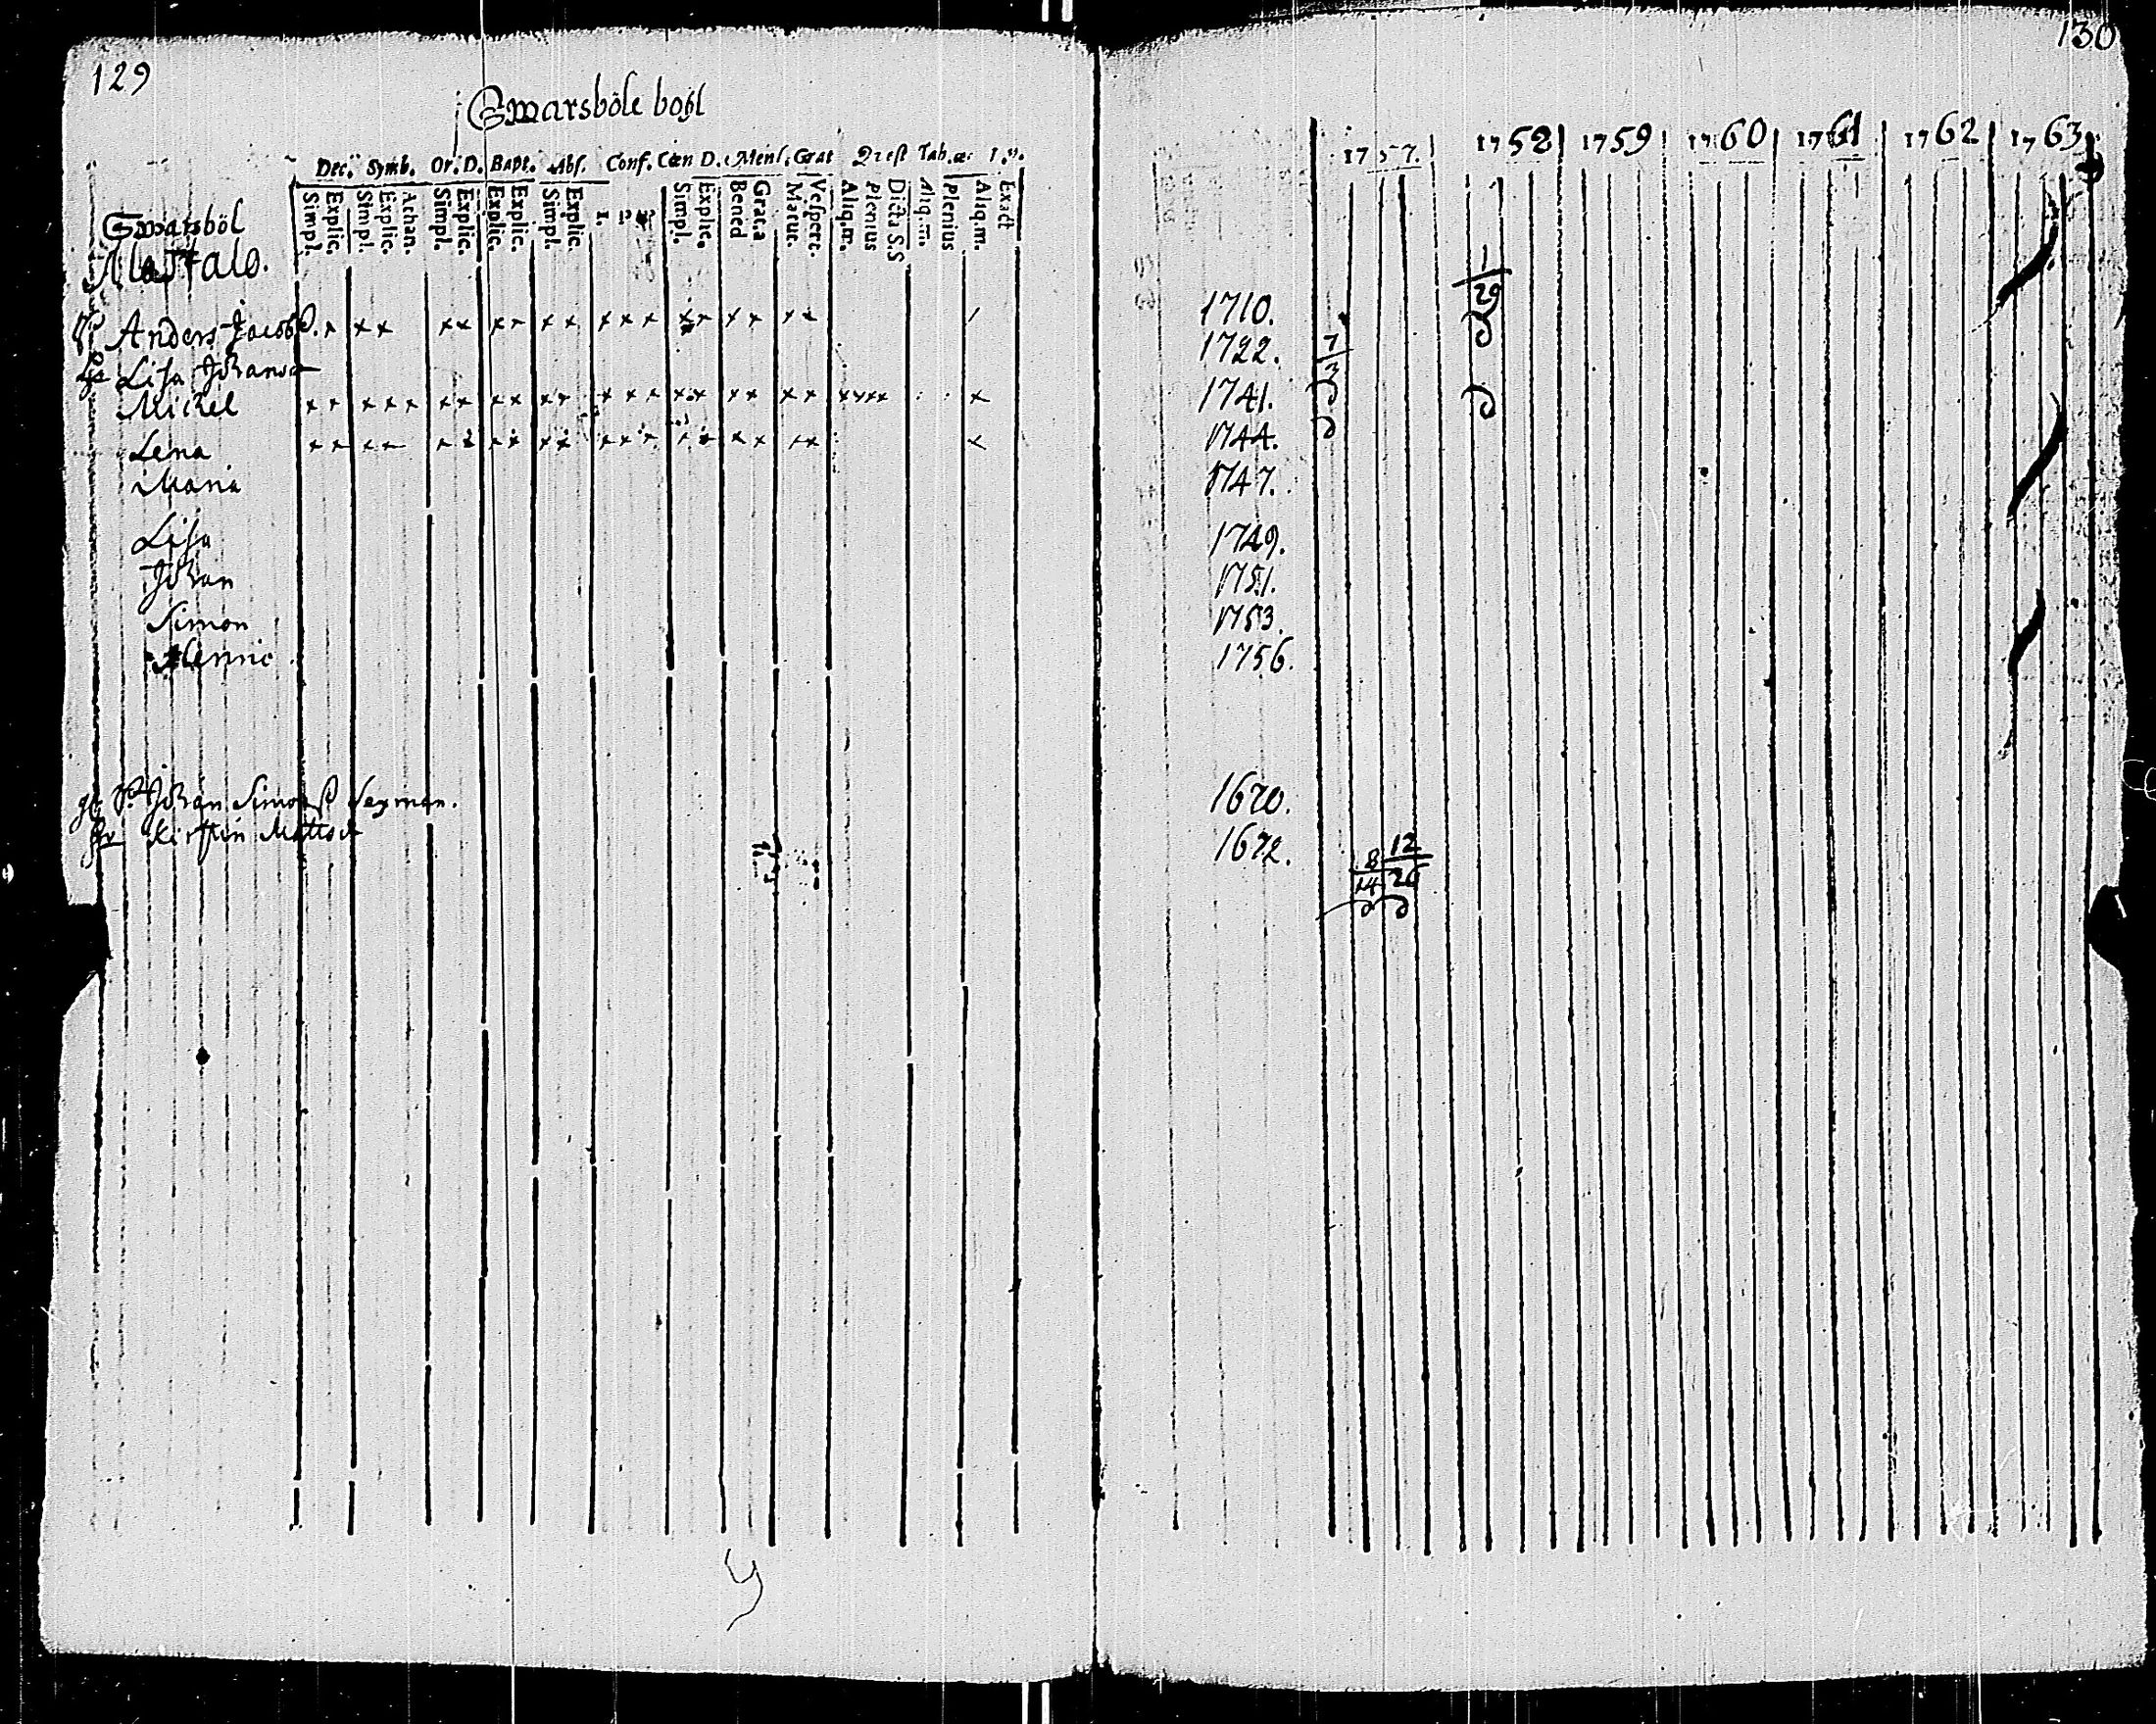 129
Gmarsböle bohl
Dec. Symb. Or. D. Bapt. Abs. Conf. Cœn D. Mens. Grat Quæst Tab. œc
Simpl. Explic. Simpl. Explic. Athan. Simpl. Explic. Explic. Explic. Simpl. Explic. Simpl. Explic. Bened Grat.a Matut. Vespert. Aliq.m. Plenius Dicta S.S Aliq.m. Plenius Aliq.m. Exact
Gmarsböl
Alastalo.
Anders Jacobs.
Lisa Johansd
Michel
Lena
Maria
Lisa
Johan
Simon
Johan Simonß
Kirstin Mattsd
130
1757. 1758 1759 1760 1761 1762 1763
1710.
1722.
1741.
1744.
1747.
1749.
1751.
1753.
1756.
1670.
1672.
7
3
29
8
14
12
26